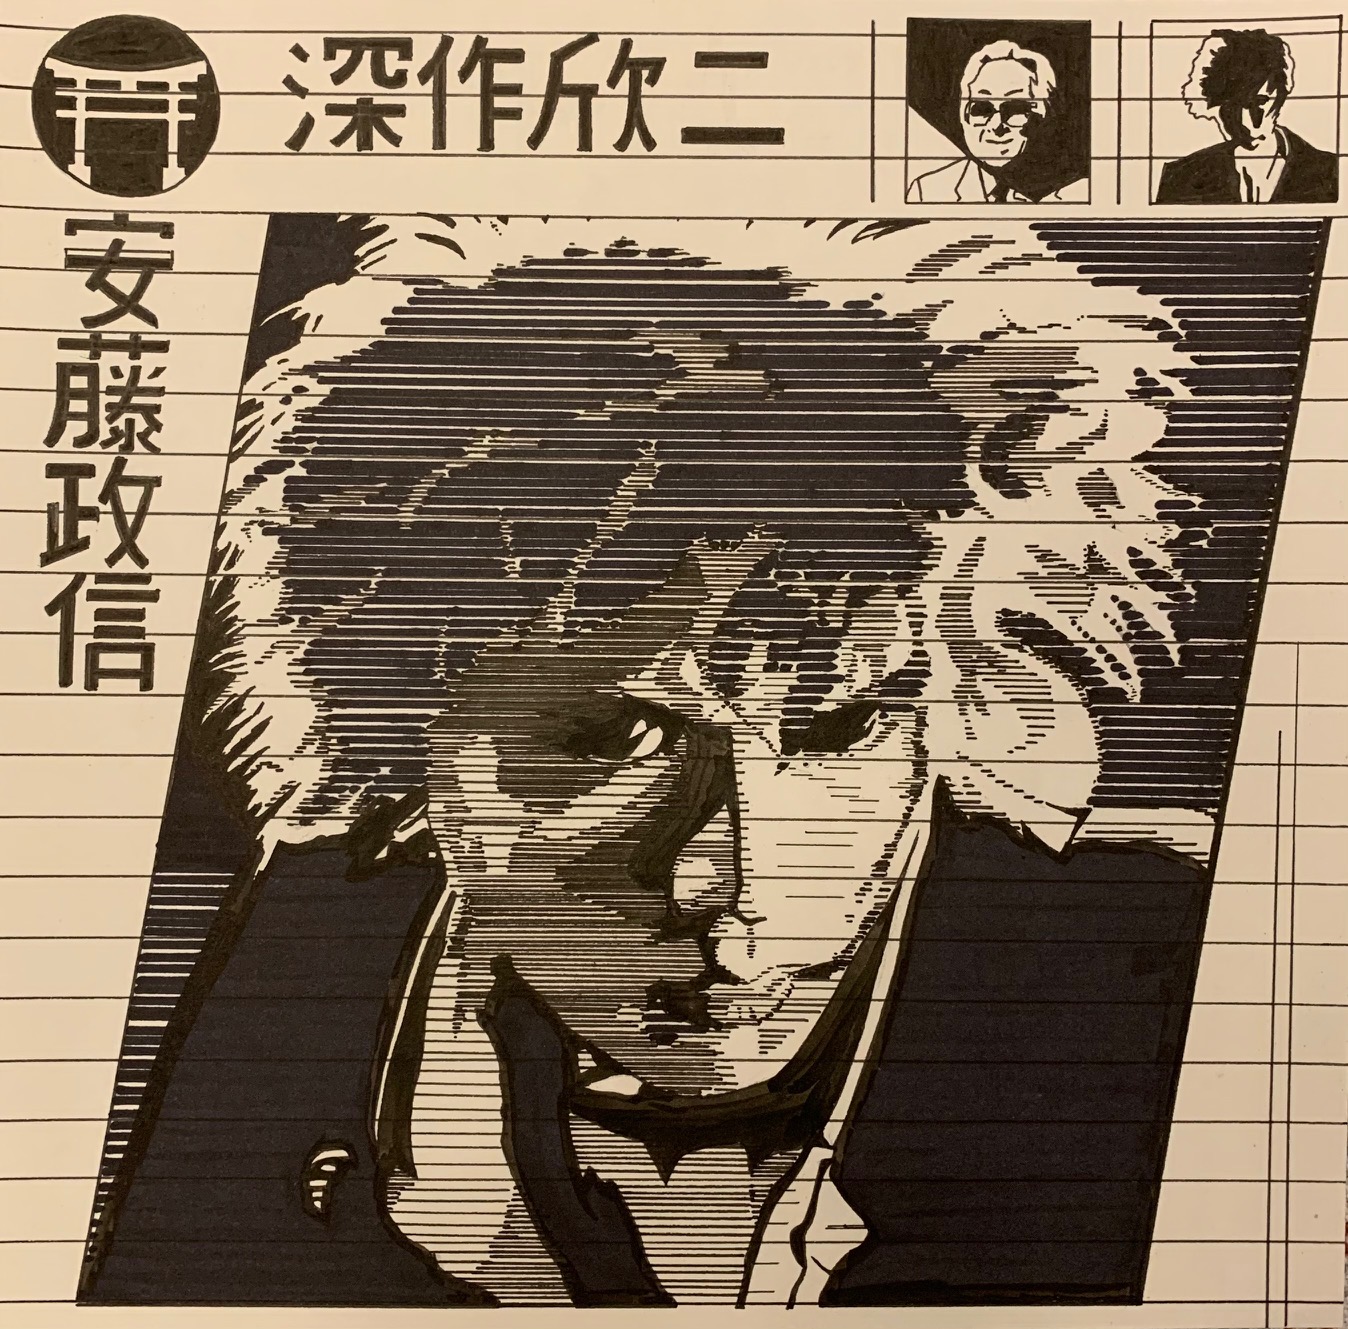 深作欣二
安藤政信